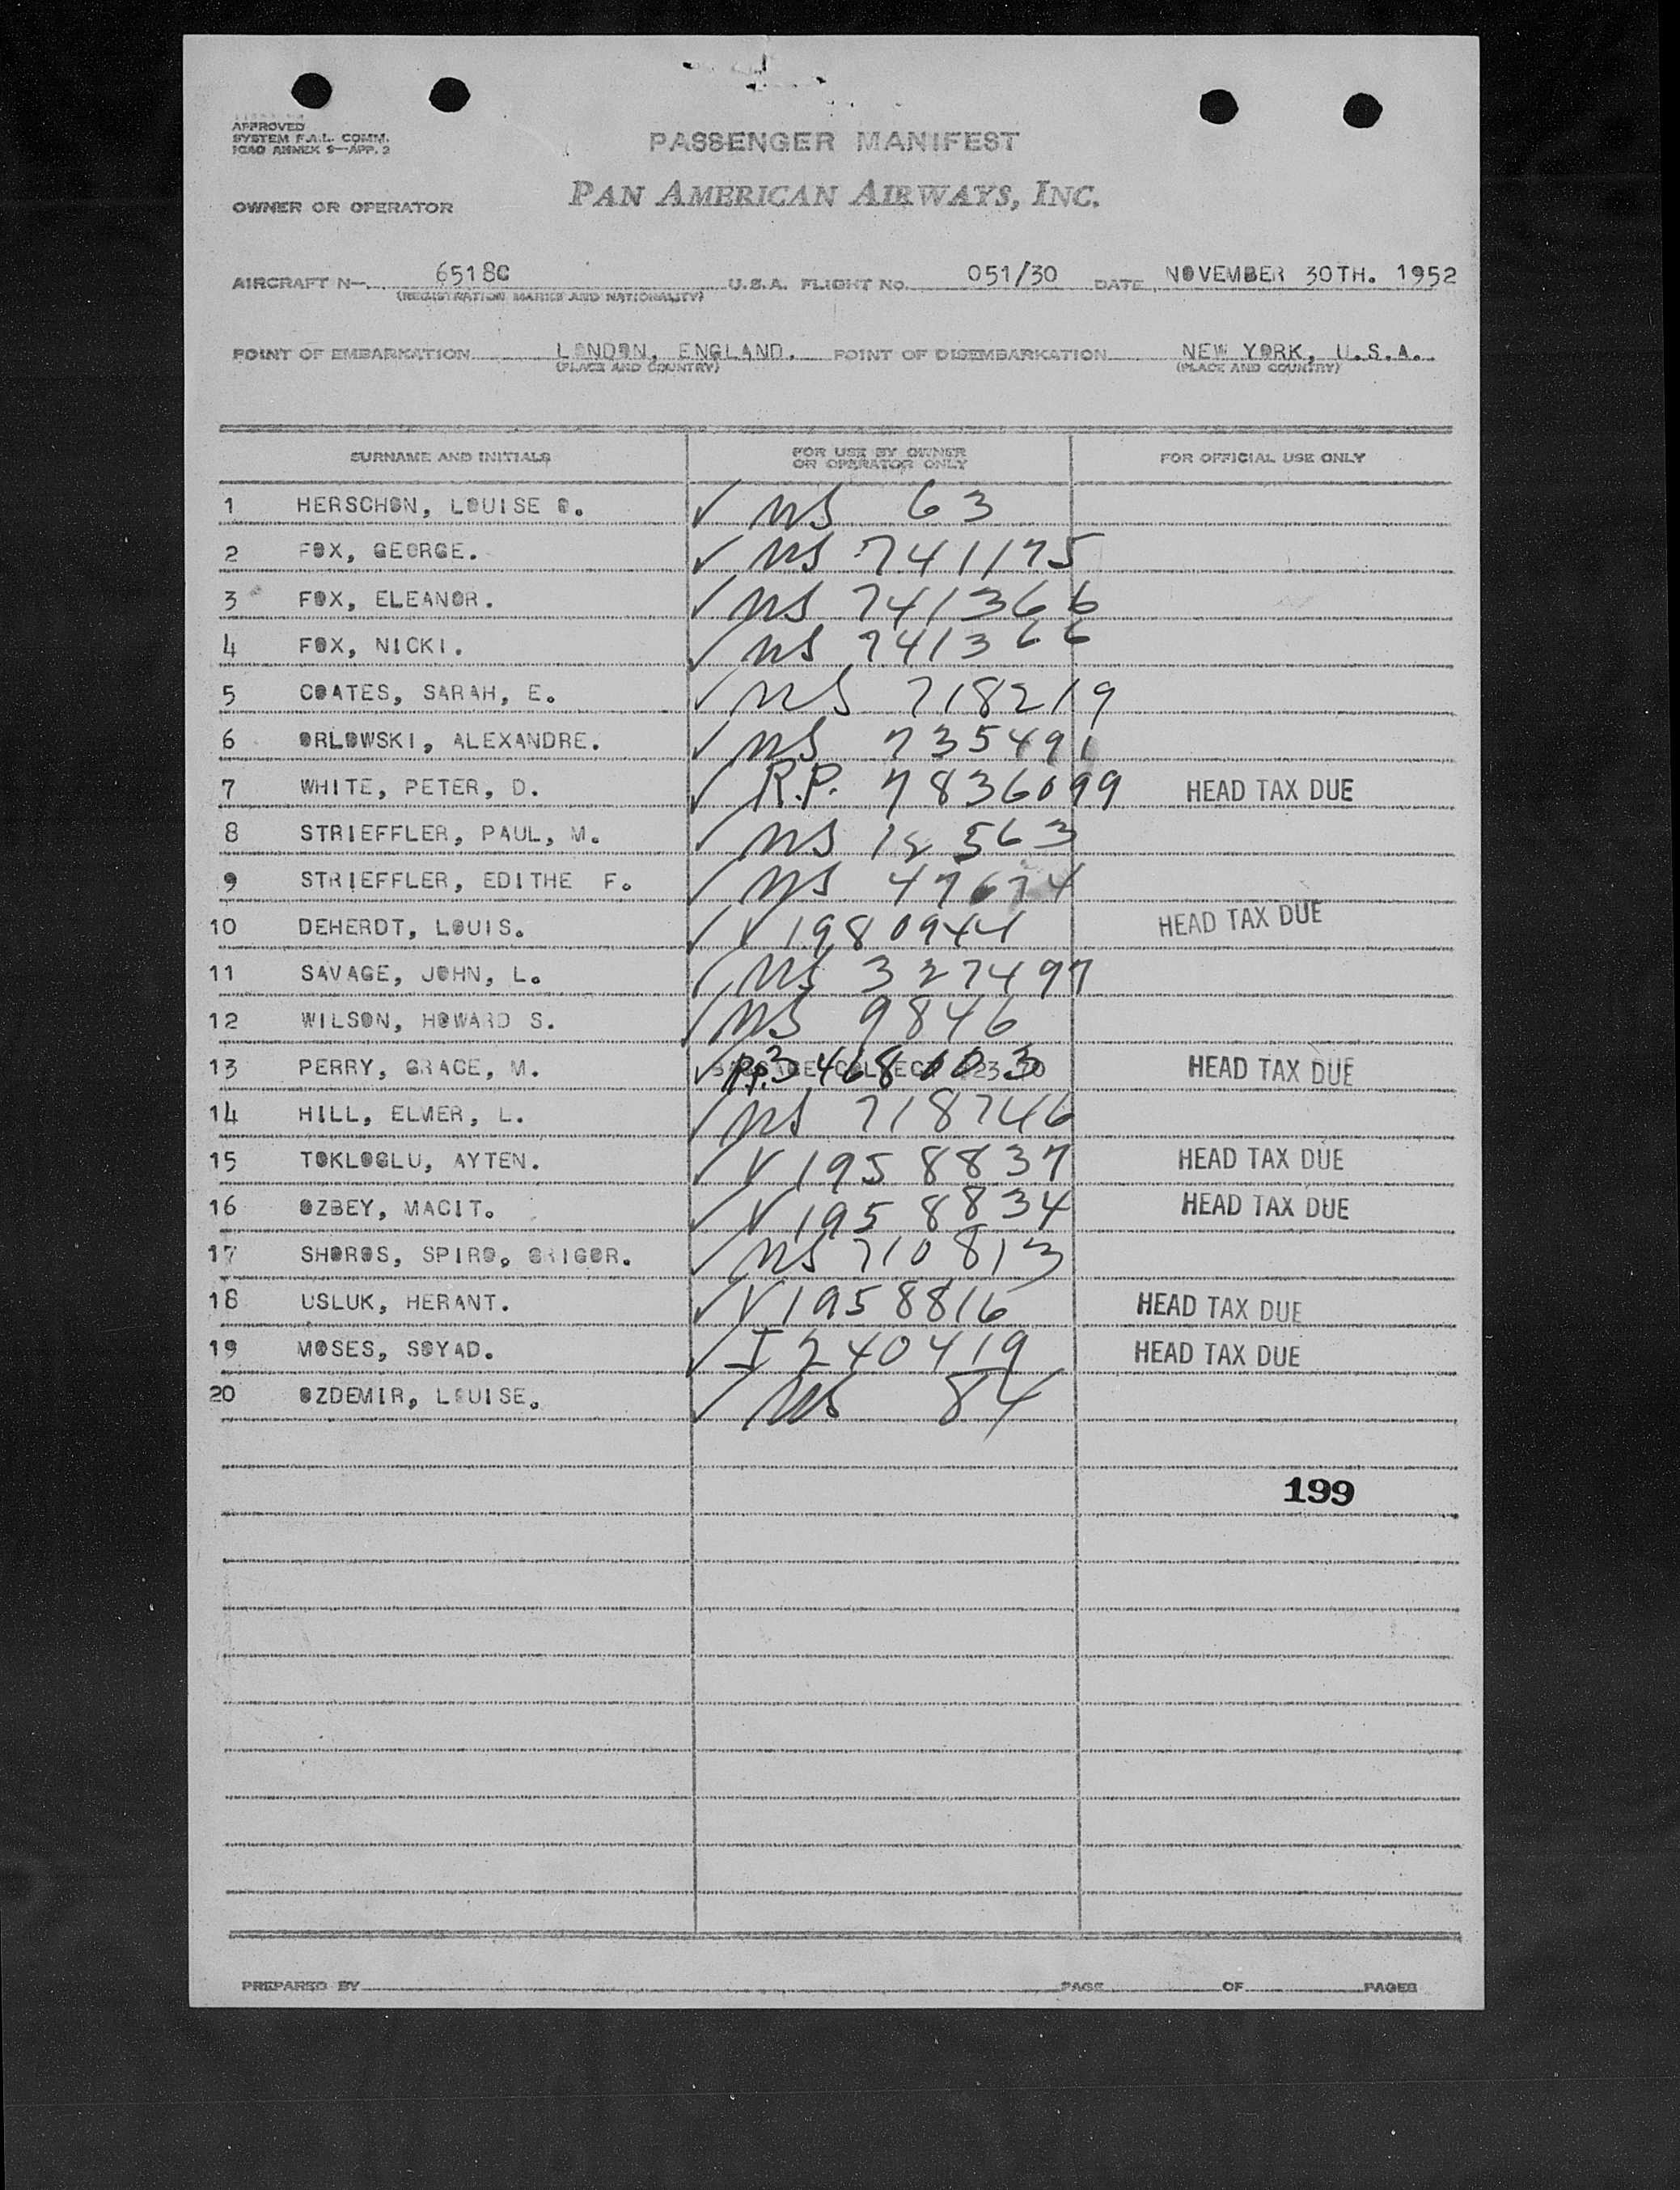 APPROVED
SYSTEM F.A.L. COMM.
ICAO ANNEX 9—APP. 2
PASSENGER MANIFEST
OWNER OR OPERATOR PAN AMERICAN AIRWAYS, INC.
AIRCRAFT N— 6518C U.S.A. FLIGHT NO. 051/30 DATE NOVEMBER 30TH. 1952
(REGISTRATION MARKS AND NATIONALITY)
POINT OF EMBARKATION LONDON, ENGLAND. POINT OF DISEMBARKATION NEW YORK, U.S.A.
(PLACE AND COUNTRY) (PLACE AND COUNTRY)
SURNAME AND INITIALS FOR USE BY OWNER OR OPERATOR ONLY FOR OFFICIAL USE ONLY
1 HERSCHON, LOUISE O. ✓ NS 63
2 FOX, GEORGE. ✓ NS 741175
3 FOX, ELEANOR. ✓ NS 741366
4 FOX, NICKI. ✓ NS 741366
5 COATES, SARAH, E. ✓ NS 718219
6 ORLOWSKI, ALEXANDRE. ✓ NS 735491
7 WHITE, PETER, D. ✓ R.P. 7836099 HEAD TAX DUE
8 STRIEFFLER, PAUL, M. ✓ NS 12563
9 STRIEFFLER, EDITHE F. ✓ NS 47674
10 DEHERDT, LOUIS. ✓ V 1980944 HEAD TAX DUE
11 SAVAGE, JOHN, L. ✓ NS 327497
12 WILSON, HOWARD S. ✓ NS 9846
13 PERRY, GRACE, M. ✓ R.P. 3468003 HEAD TAX DUE
14 HILL, ELMER, L. ✓ NS 718746
15 TOKLOGLU, AYTEN. ✓ V 1958837 HEAD TAX DUE
16 OZBEY, MACIT. ✓ V 1958834 HEAD TAX DUE
17 SHOROS, SPIRO, GRIGOR. ✓ NS 710813
18 USLUK, HERANT. ✓ V 1958816 HEAD TAX DUE
19 MOSES, SOYAD. ✓ I 240419 HEAD TAX DUE
20 OZDEMIR, LOUISE. ✓ NS 84
199
PREPARED BY PAGE OF PAGES